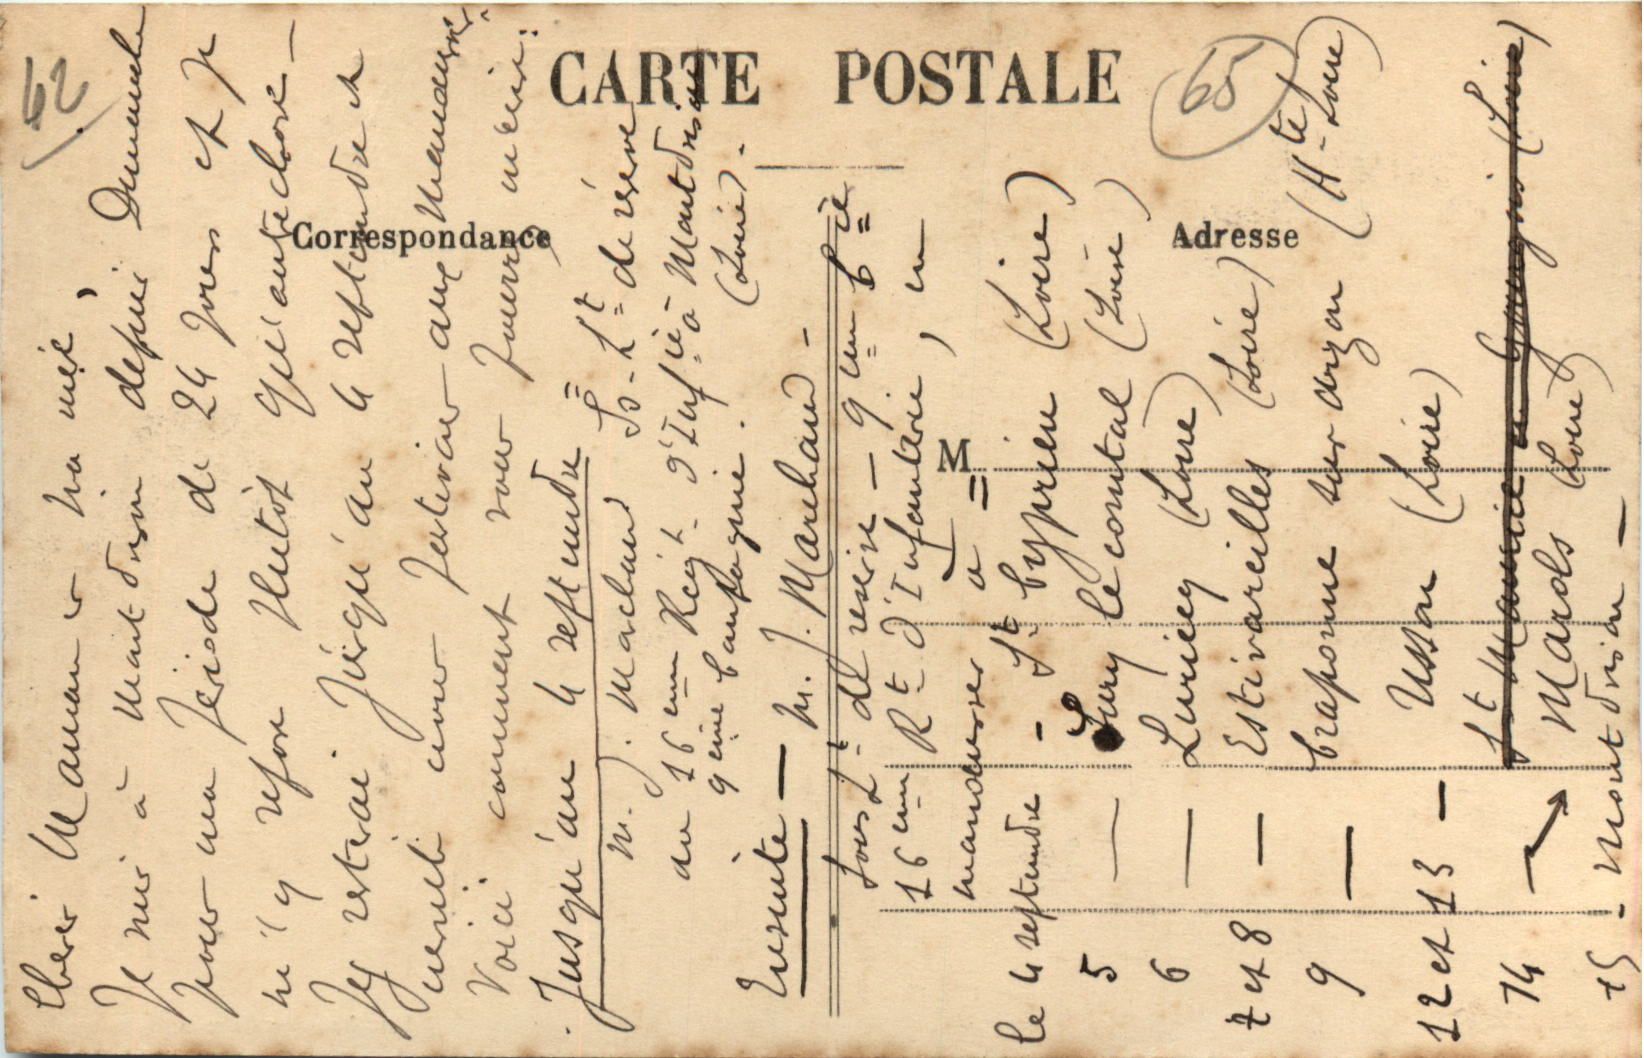 CARTE POSTALE
Correspondance
Adresse
M
62
65
Chère Maman et ma mie,
Je suis à Montbrison depuis Dimanche
pour ma période de 24 jours et je
m'y repose plutôt qu'autre chose —
J'y resterai jusqu'au 4 septembre et
ensuite nous partirons aux manoeuvres.
Voici comment vous pourrez m'écrire:
Jusqu'au 4 septembre =
M. J. Marchand Ss-Lt de réserve
au 16eme Régt d'Infie à Montbrison
9eme Compagnie. (Loire) -
Ensuite — M. J. Marchand -
Sous Lt de réserve - 9eme Cie
16eme Rt d'Infanterie, en
manoeuvres à =
le 4 septembre - St Cyprien (Loire)
5 — Sury le comtal (Loire)
6 — Luriecq (Loire)
7 et 8 — Estivareilles (Loire)
9 — Craponne sur arzon (Hte Loire)
12 et 13 - Usson (Loire)
14 → St Maurice en Gourgois (Loire)
Marols (Loire)
15 - Montbrison —